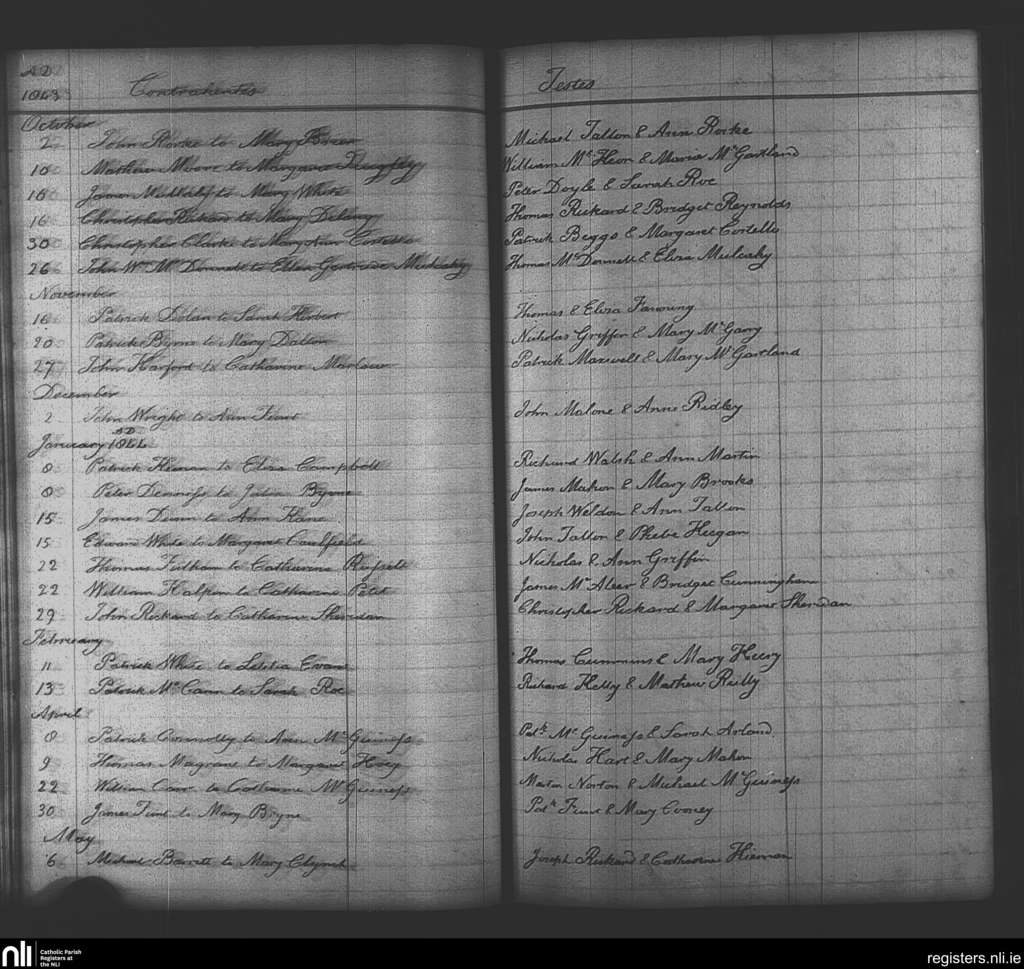 AD
1843 Contrahentes Testes
October
2 John Rorke to Mary Brien Michael Tallon & Ann Rorke
10 Mathew Moore to Margaret William McKeon & Maria McGartland
16 James to Mary White Peter Doyle & Sarah Roe
16 Christopher Rickard to Mary Delany Thomas Rickard & Bridget Reynolds
30 Christopher Clarke to Mary Ann Costello Patrick Beggs & Margaret Costello
26 John Wm McDonnell to Ellen Gertrude Mulcahy Thomas McDonnell & Eliza Mulcahy
November
16 Patrick Dolan to Sarah Herbert Thomas & Eliza Fanning
20 Patrick Byrne to Mary Dalton Nicholas Griffin & Mary McGarry
27 John Harford to Catharine Marlow Patrick Maxwell & Mary McGartland
December
2 John Wright to Ann John Malone & Anne Ridley
AD
January 1844
8 Patrick to Eliza Campbell Richard Walsh & Ann Martin
8 Peter Denniss to Julia Byrne James Mahon & Mary Brooks
15 James Dunn to Ann Kane Joseph Weldon & Ann Tallon
15 Edward White to Margaret Caulfield John Tallon & Phebe Heegan
22 Thomas to Catharine Nicholas & Ann Griffin
22 William Halpin to Catharine Petit James McAleer & Bridget Cunningham
29 John Rickard to Catharine Sheridan Christopher Rickard & Margaret Sheridan
February
11 Patrick White to Letitia Evans Thomas Cummins & Mary Heery
13 Patrick McCann to Sarah Roe Richard Kelly & Mathew Reilly
April
8 Patrick Connolly to Ann McGuiness Patk McGuiness & Sarah Arland
9 Thomas Magrane to Margaret Hoey Nicholas Hart & Mary Mahon
22 William Carr to Catharine McGuiness Martin Norton & Michael McGuiness
30 James to Mary Byrne Patk & Mary Cooney
May
6 Michael Barrett to Mary Clynch Joseph Rickard & Catharine Kiernan
nli
Catholic Parish
Registers at
the NLI
registers.nli.ie